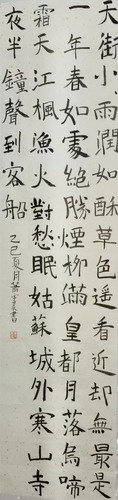 天街小雨潤如酥草色遙看近却無最是
一年春好處絕勝煙柳滿皇都月落烏啼
霜天江楓漁火對愁眠姑蘇城外寒山寺
夜半鐘聲到客船
乙巳夏月 書